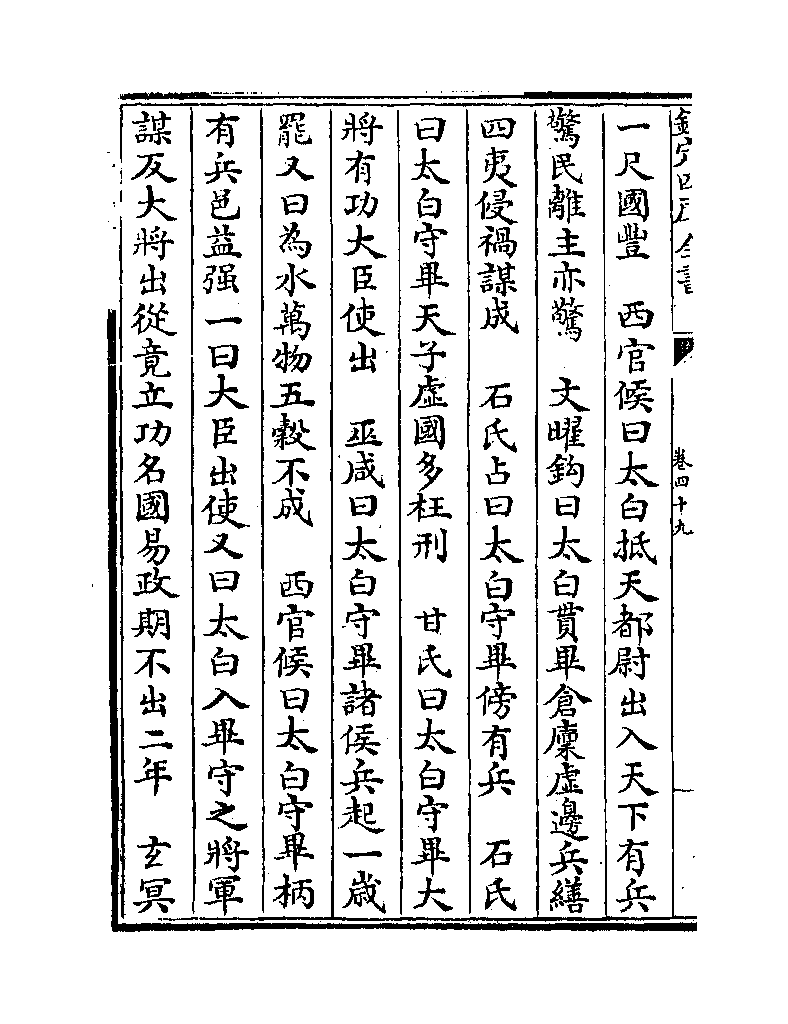 欽定四庫全書
卷四十九
一尺國豐　西官候曰太白抵天都尉出入天下有兵
驚民離主亦驚　文曜鈎曰太白貫畢倉廩虛邊兵繕
四夷侵禍謀成　石氏占曰太白守畢傍有兵　石氏
曰太白守畢天子虛國多枉刑　甘氏曰太白守畢大
將有功大臣使出　巫咸曰太白守畢諸侯兵起一歲
罷又曰為水萬物五穀不成　西官候曰太白守畢柄
有兵邑益强一曰大臣出使又曰太白入畢守之將軍
謀反大將出從竟立功名國易政期不出二年　玄冥